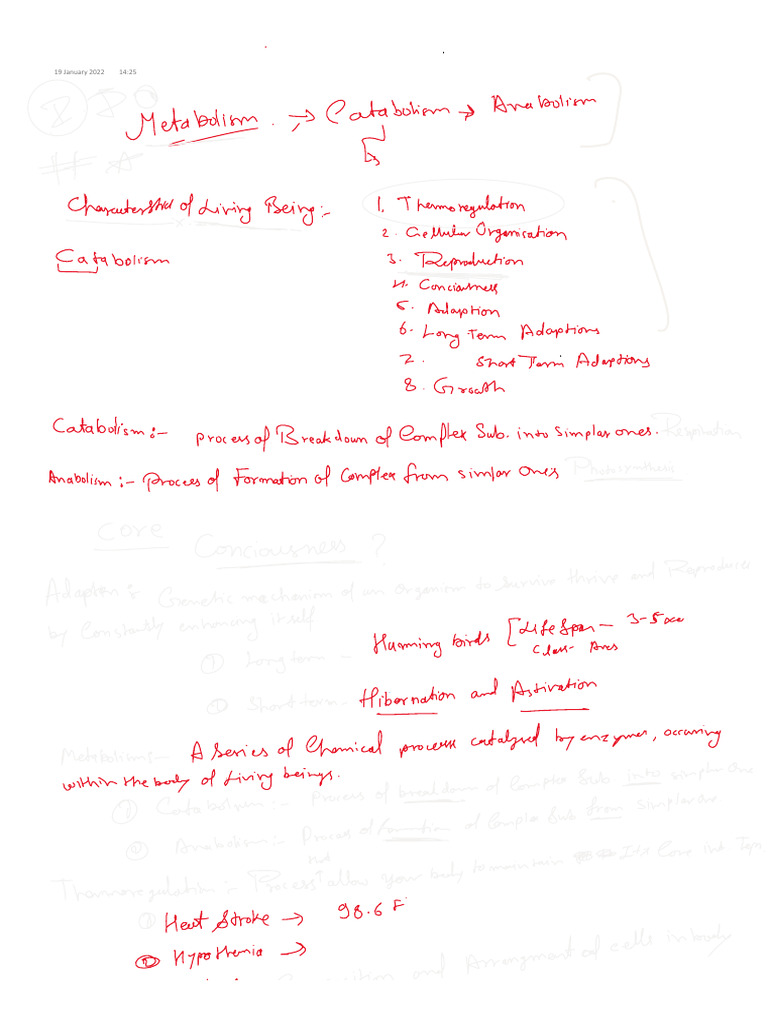 19 January 2022 14:25
Metabolism. → Catabolism → Anabolism
Characterstid of Living Being:-
1. Thermoregulation
2. Cellular Organisation
3. Reproduction
Catabolism
4. Conciousness
5. Adaption
6. Long Term Adaptions
7. Short Term Adaptions
8. Growth
Catabolism:- process of Breakdown of Complex Sub. into Simplar ones. Respiration
Anabolism:- Process of Formation of Complex from simplar Ones Photosynthesis
Core Conciousness?
Adaption: Genetic mechanism of an organism to survive thrive and Reproduce
by Constantly enhancing itself
Humming birds [Life Span - 3-5
Class- Aves
① Long term -
Short term - Hibernation and Astivation
Metabolism:- A Series of Chemical process catalysed by enzymes, occuring
within the body of Living beings.
① Catabolism:- Process of breakdown of Complex Sub into simplar one
② Anabolism:- Process of formation of Complex Sub from simplar
Thermoregulation:- Process that allow your body to maintain Its Core int
Heat Stroke → 98.6 F
② Hypothemia →
and Arrangment of cells in body